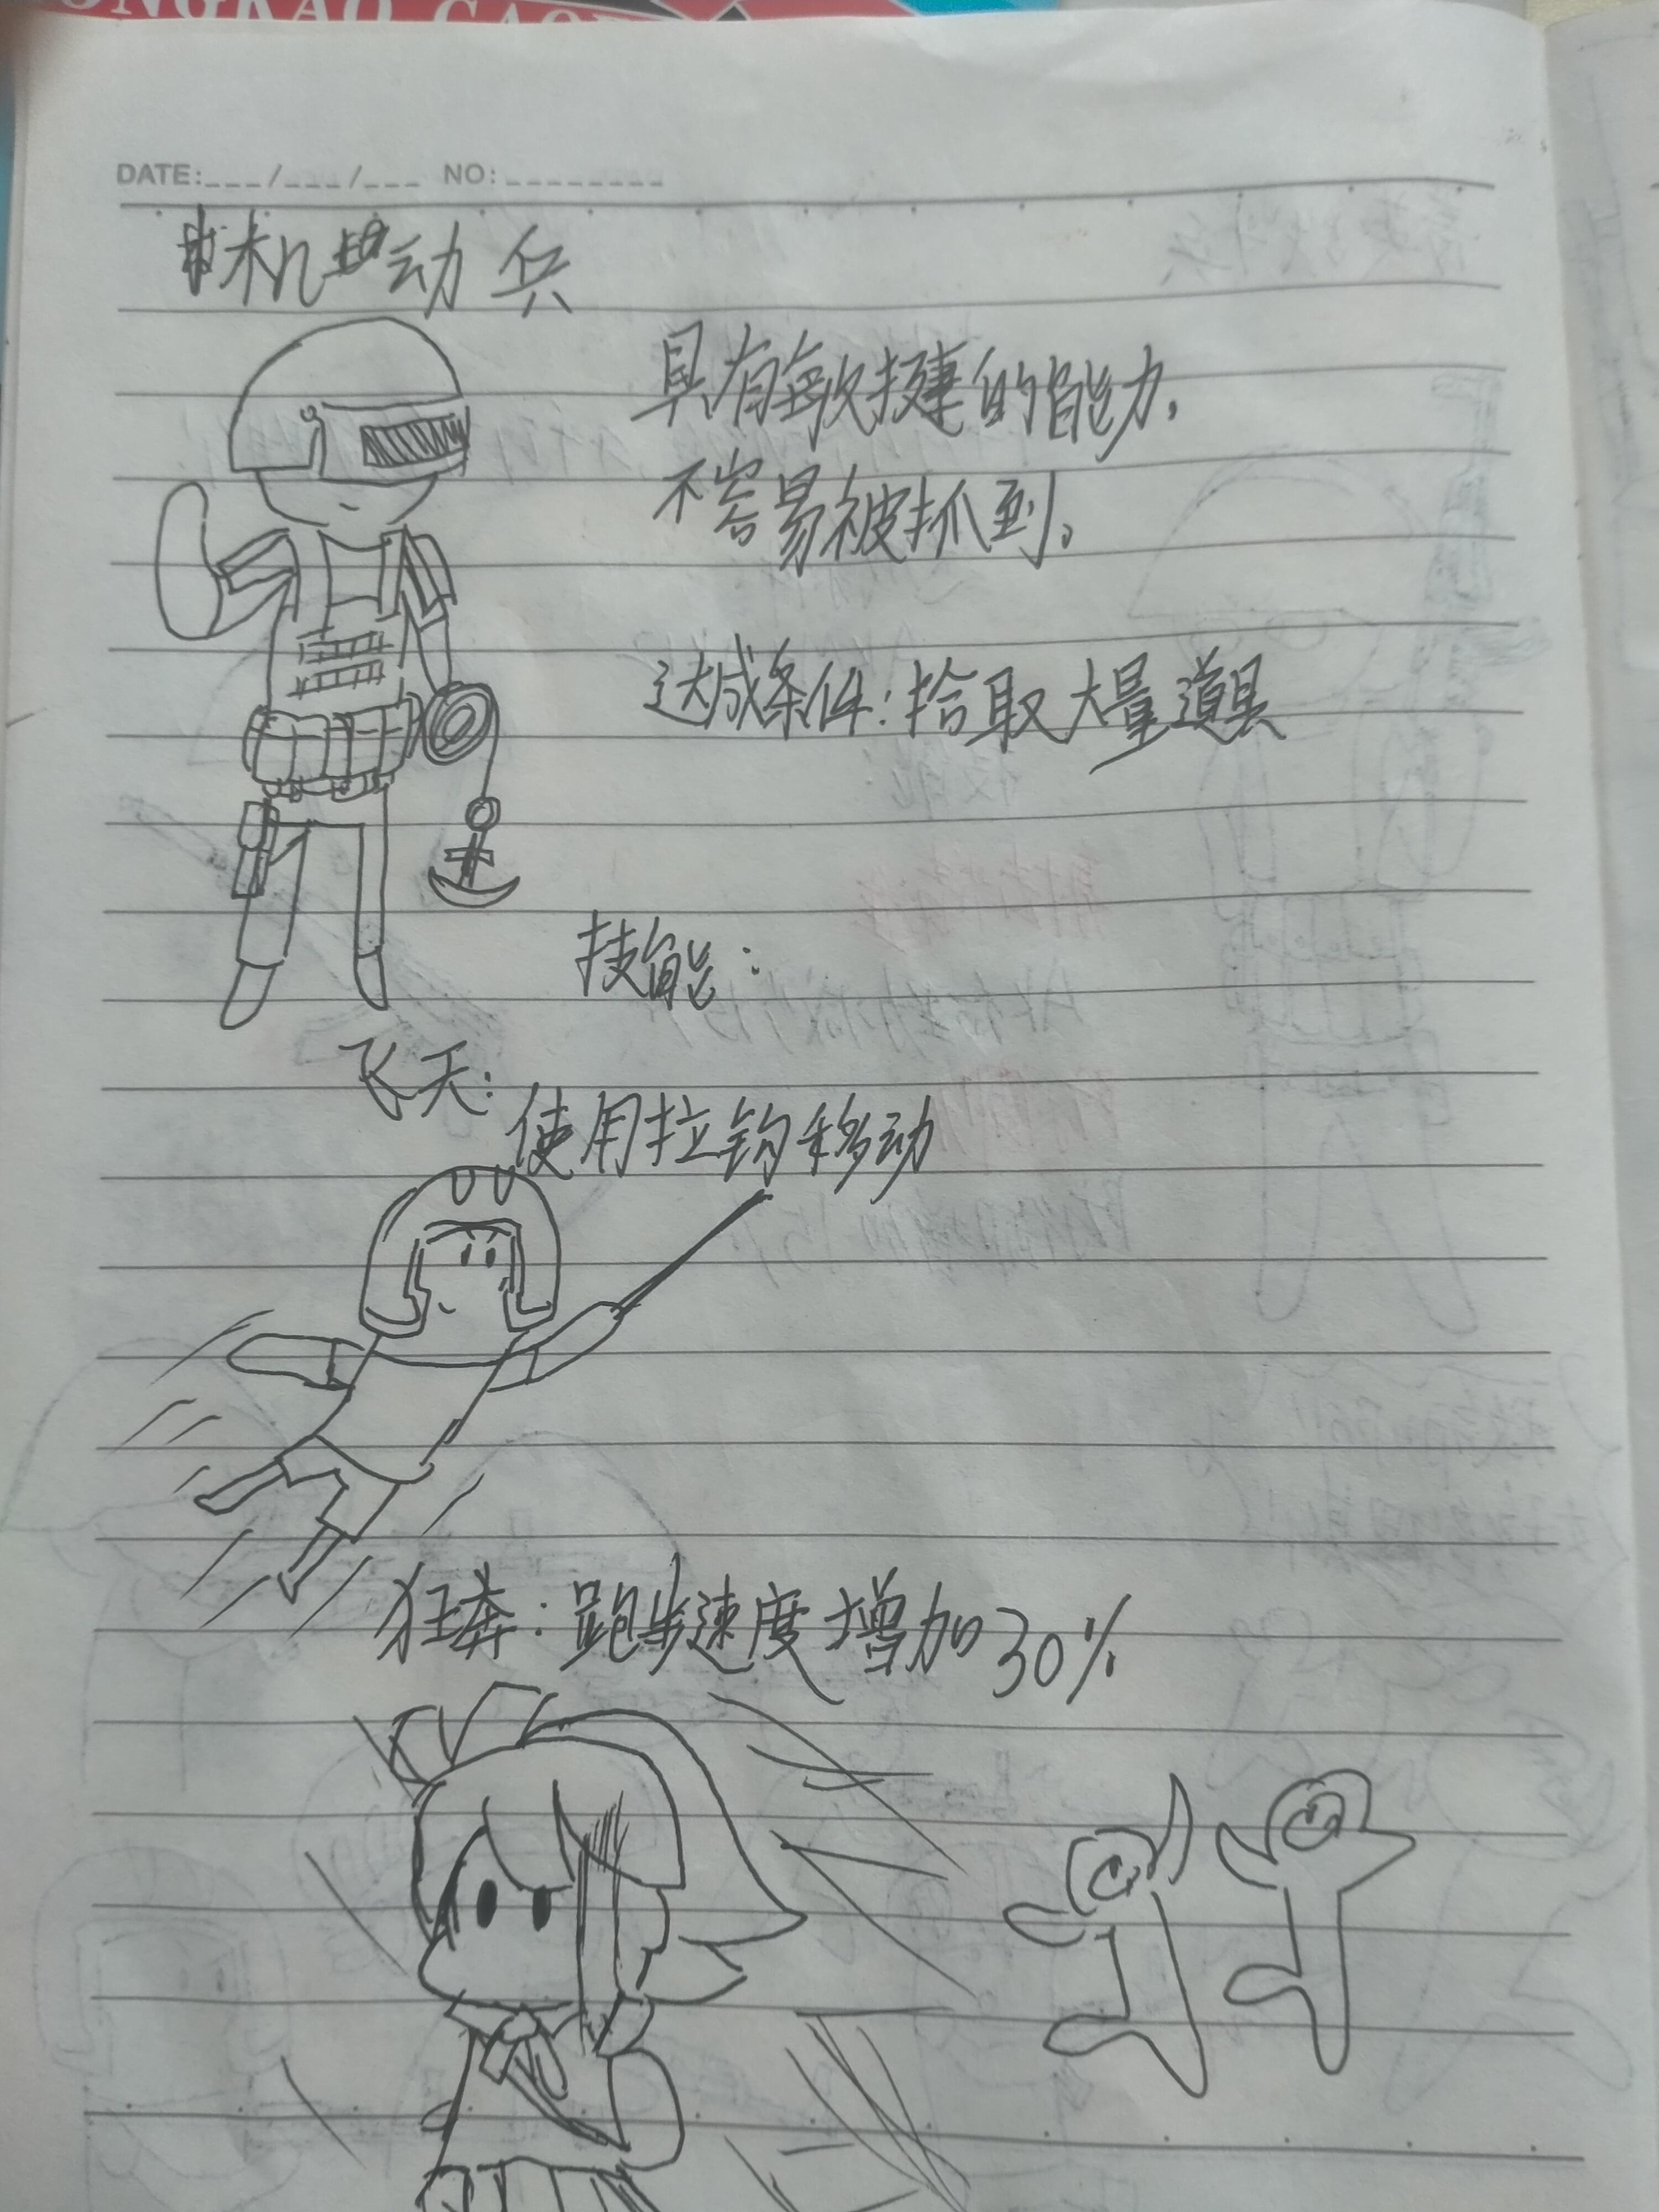 DATE:___/___/___ NO:________
机动兵
具有敏捷的能力,
不容易被抓到。
达成条件:拾取大量道具
技能:
飞天:
使用拉钩移动
狂奔:跑步速度增加30%